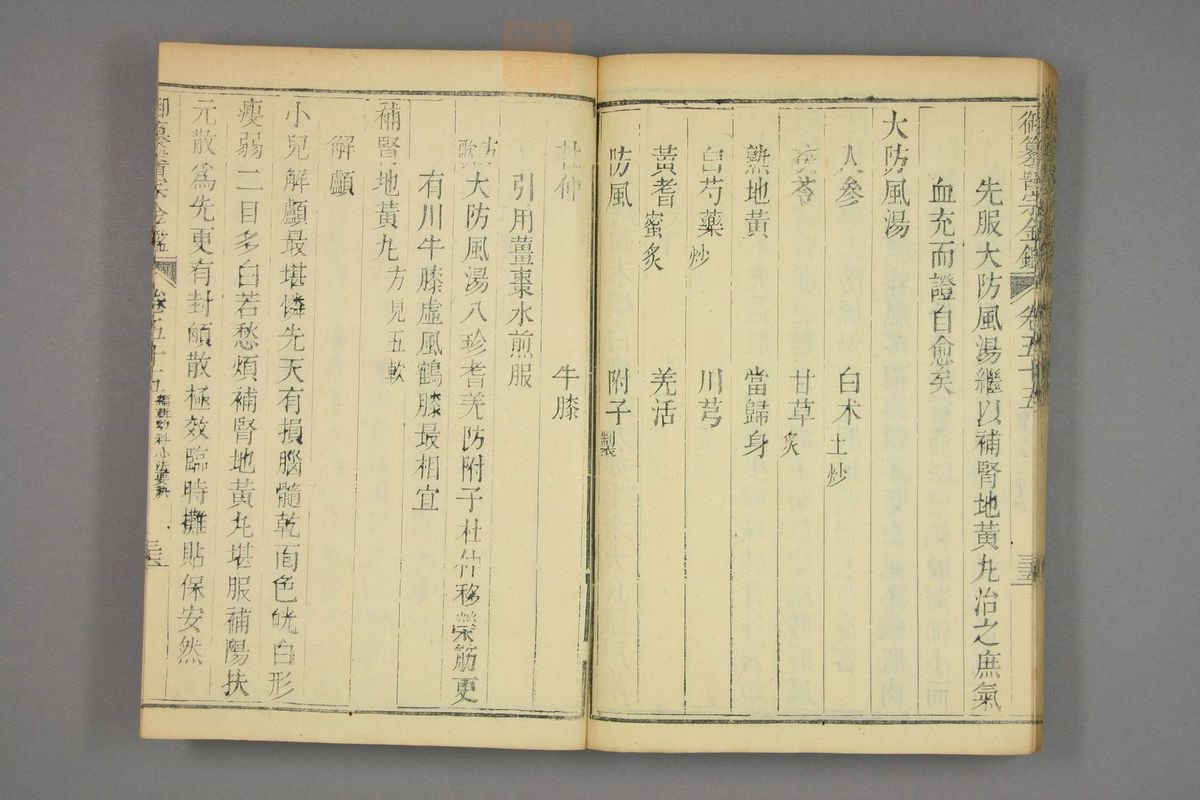 御纂醫宗金鑑 卷五十五
先服大防風湯繼以補腎地黃丸治之庶氣
血充而證自愈矣
大防風湯
人參 白朮土炒
茯苓 甘草炙
熟地黃 當歸身
白芍藥炒 川芎
黃耆蜜炙 羌活
防風 附子製
杜仲 牛膝
引用薑棗水煎服
方歌 大防風湯八珍耆羌防附子杜仲移榮筋更
有川牛膝虛風鶴膝最相宜
補腎地黃丸方見五軟
解顱
小兒解顱最堪憐先天有損腦髓乾面色㿠白形
瘦弱二目多白若愁煩補腎地黃丸堪服補陽扶
元散爲先更有封顖散極效臨時攤貼保安然
御纂醫宗金鑑 卷五十五 編輯幼科心法要訣